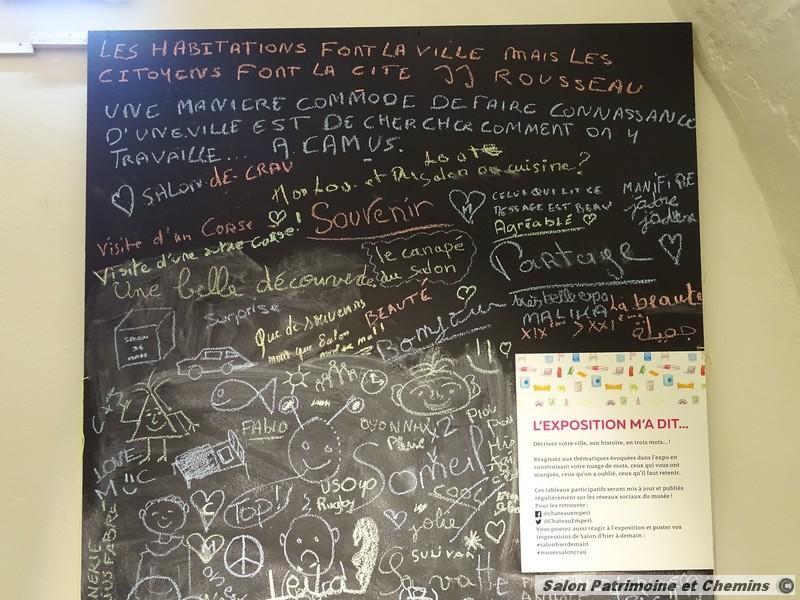 LES HABITATIONS FONT LA VILLE MAIS LES
CITOYENS FONT LA CITE JJ ROUSSEAU
UNE MANIERE COMMODE DE FAIRE CONNAISSANCE
D'UNE VILLE EST DE CHERCHER COMMENT ON Y
TRAVAILLE... A. CAMUS.
SALON-DE-CRAU
salon ou cuisine?
Visite d'un Corse
Visite d'une autre Corse!
Souvenir
M
CELUI QUI LIT CE
MESSAGE EST BEAU
Agréable
MANIFIRE
j'adore
j'adore
Partage
le canapé
du salon
Une belle découverte
Surprise
Que de souvenirs
BEAUTÉ
Bonjour
très belle expo
MALIKA
La beauté
XIXème > XXIème
جميلة
SALON DE
FABIO
OYONNAX
Soleil
LOVE
USOYO
Rugby
TOP!
C
M
jolie
SULIVAN
Leïla
Ça
L'EXPOSITION M'A DIT...
Décrivez votre ville, son histoire, en trois mots... !
Réagissez aux thématiques évoquées dans l'expo en
construisant votre nuage de mots, ceux qui vous ont
marqués, ceux qu'on a oublié, ceux qu'il faut retenir.
Ces tableaux participatifs seront mis à jour et publiés
régulièrement sur les réseaux sociaux du musée !
Pour les retrouver :
@chateauemperi
@ChateauEmperi
Vous pouvez aussi réagir à l'exposition et poster vos
impressions de Salon d'hier à demain :
#salonhierdemain
#museesaloncrau
Salon Patrimoine et Chemins ©